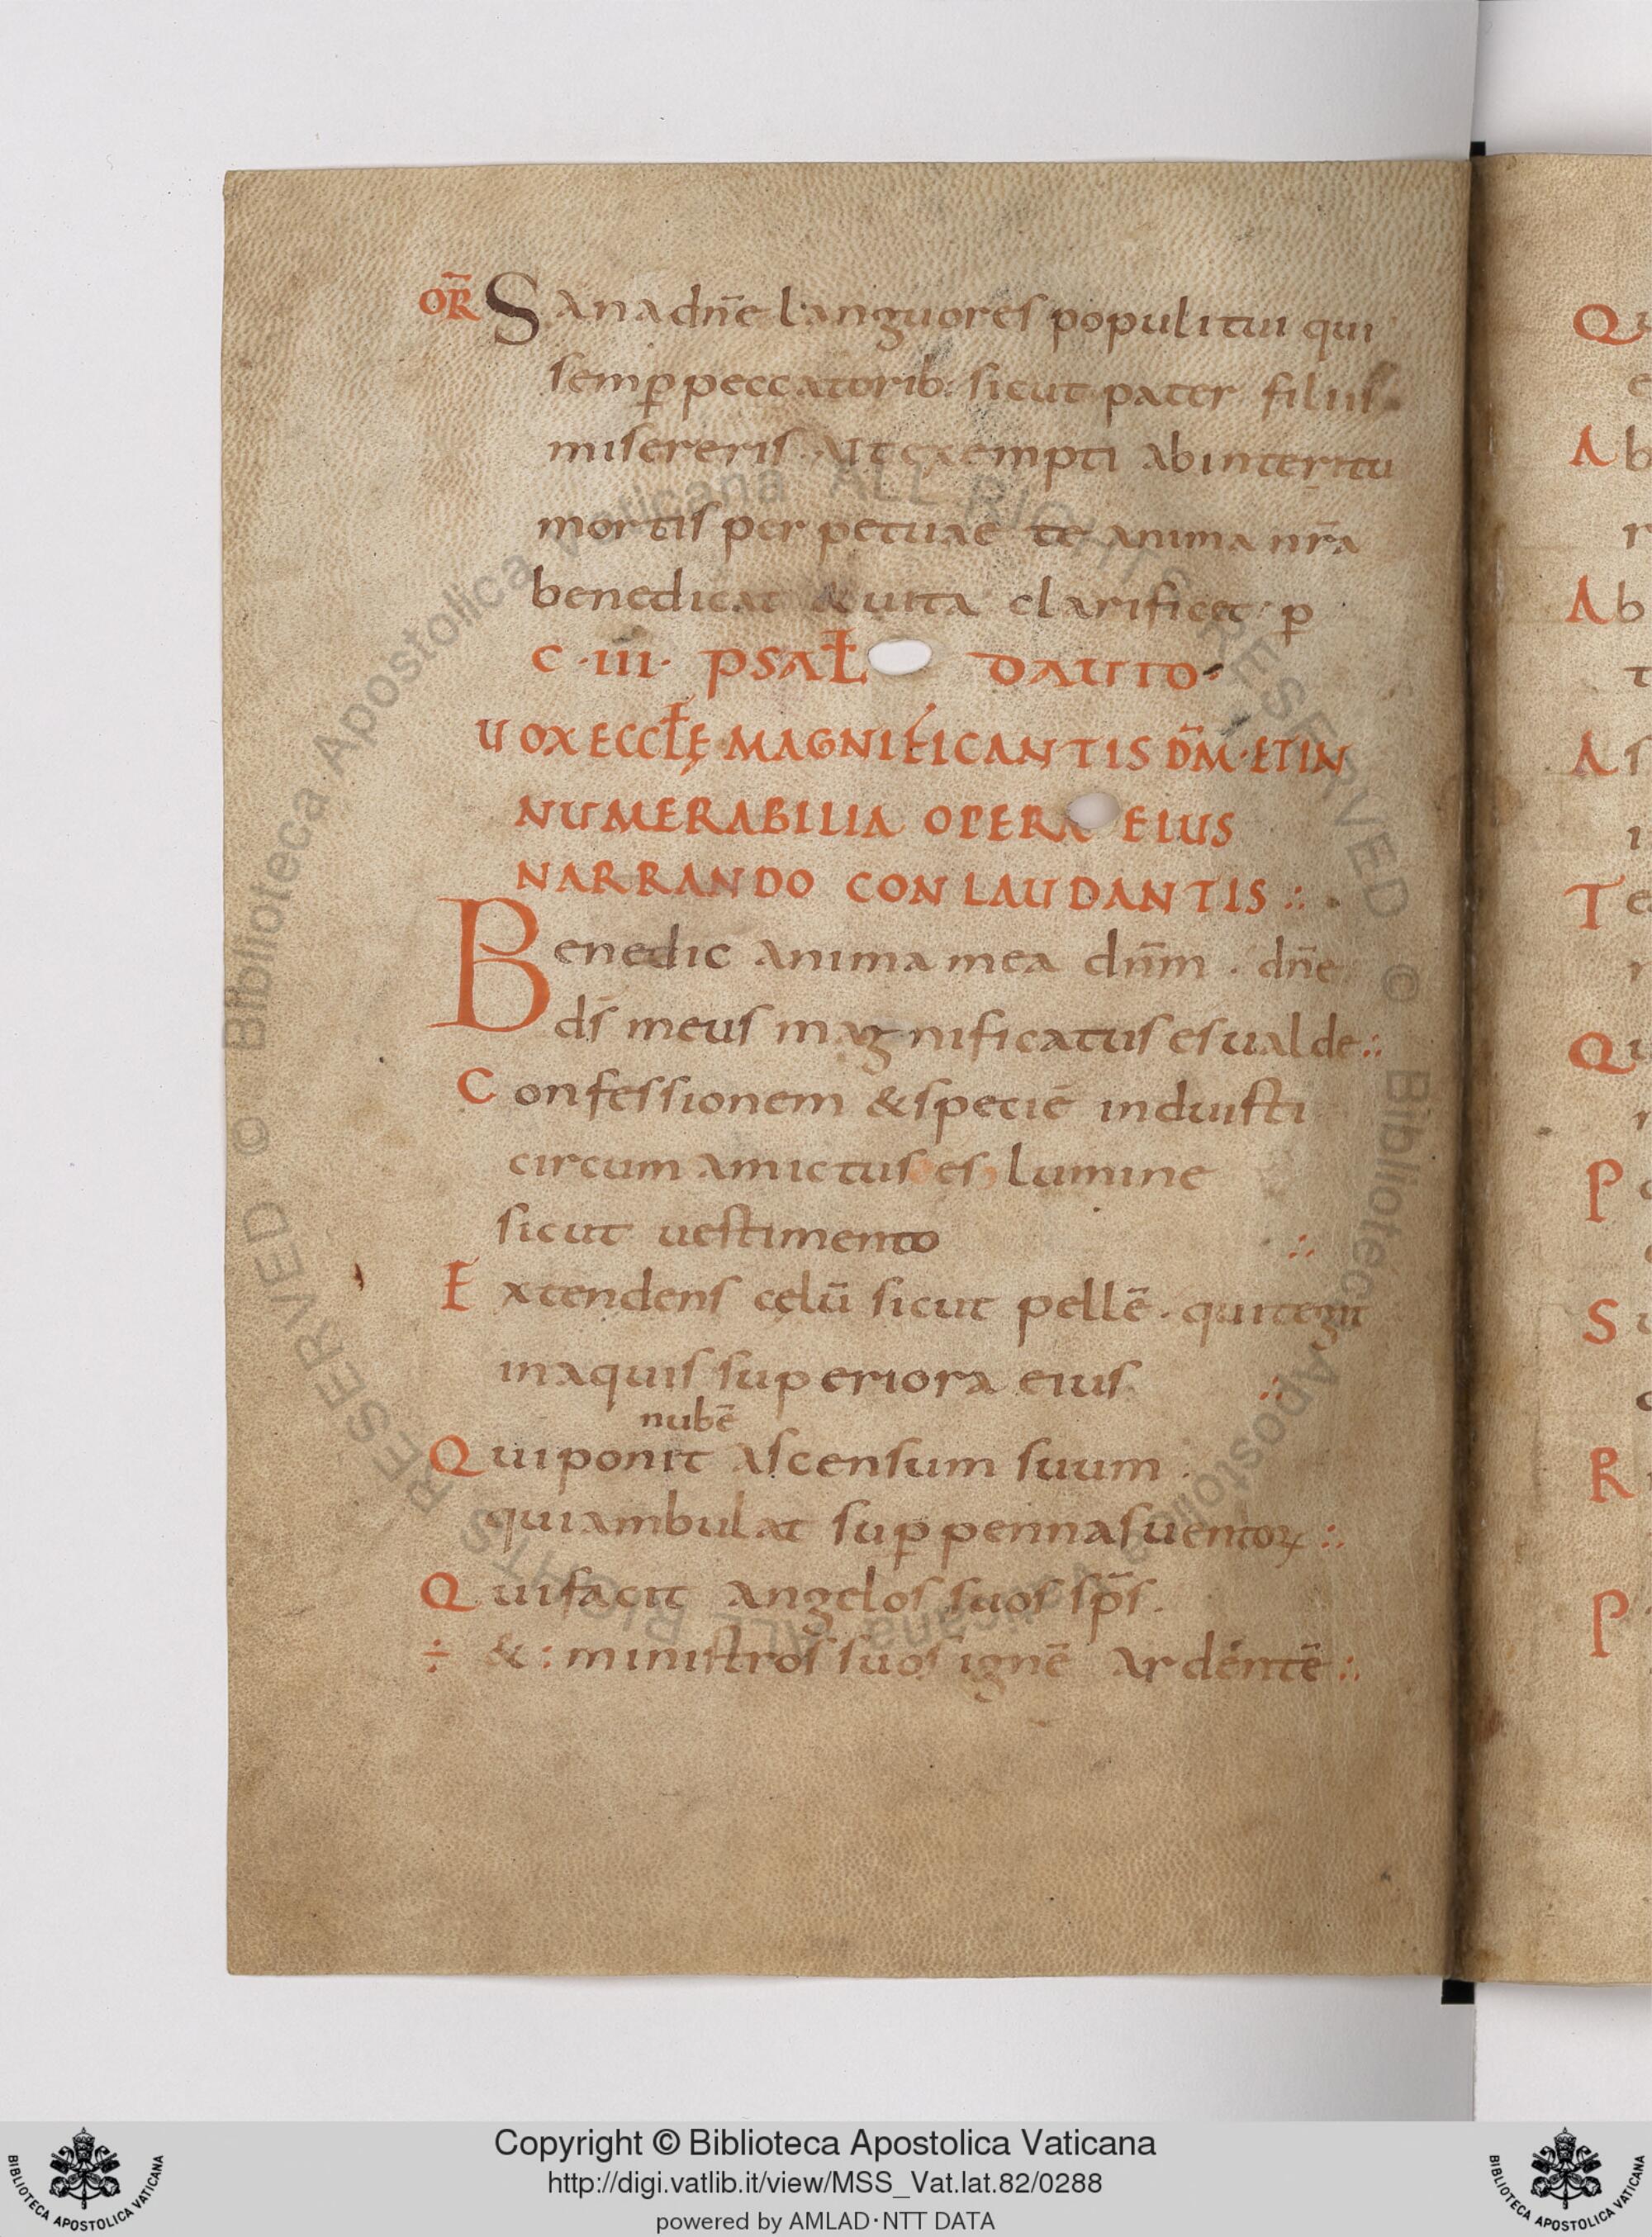 OR̄ Sana dn̄e languores populi tui qui
semꝑ peccatorib: sicut pater filiis
misereris. Ut exempti ab interitu
mortis perpetuae te anima nr̄a
benedicat & uita clarificet· ꝑ
C·IIII· PSAŁ DAUID·
UOX ECCŁĘ MAGNIFICANTIS DM̄·ET IN
NUMERABILIA OPERA EIUS
NARRANDO CONLAUDANTIS :·
Benedic anima mea dnm̄ · dn̄e
ds̄ meus magnificatus es ualde :·
Confessionem & speciē induisti
circum amictus es lumine
sicut uestimento :·
Extendens cęlū sicut pellē · qui tegit
in aquis superiora eius :·
nubē
Qui ponit ascensum suum ·
qui ambulat suꝑ pennas uentoꝝ :·
Qui facit angelos suos sp̄s ·
÷ & : ministros suos ignē ardentē :·
Q
A b
A b
A
T
Q
P
S
R
P
© Biblioteca Apostolica Vaticana ALL RIGHTS RESERVED © Biblioteca Apostolica Vaticana ALL RIGHTS RESERVED
BIBLIOTECA APOSTOLICA VATICANA
Copyright © Biblioteca Apostolica Vaticana
http://digi.vatlib.it/view/MSS_Vat.lat.82/0288
powered by AMLAD·NTT DATA
BIBLIOTECA APOSTOLICA VATICANA